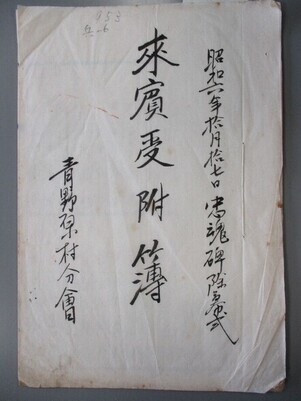 昭和六年拾月拾七日 忠魂碑除幕式
來賓受附簿
青野原村分會